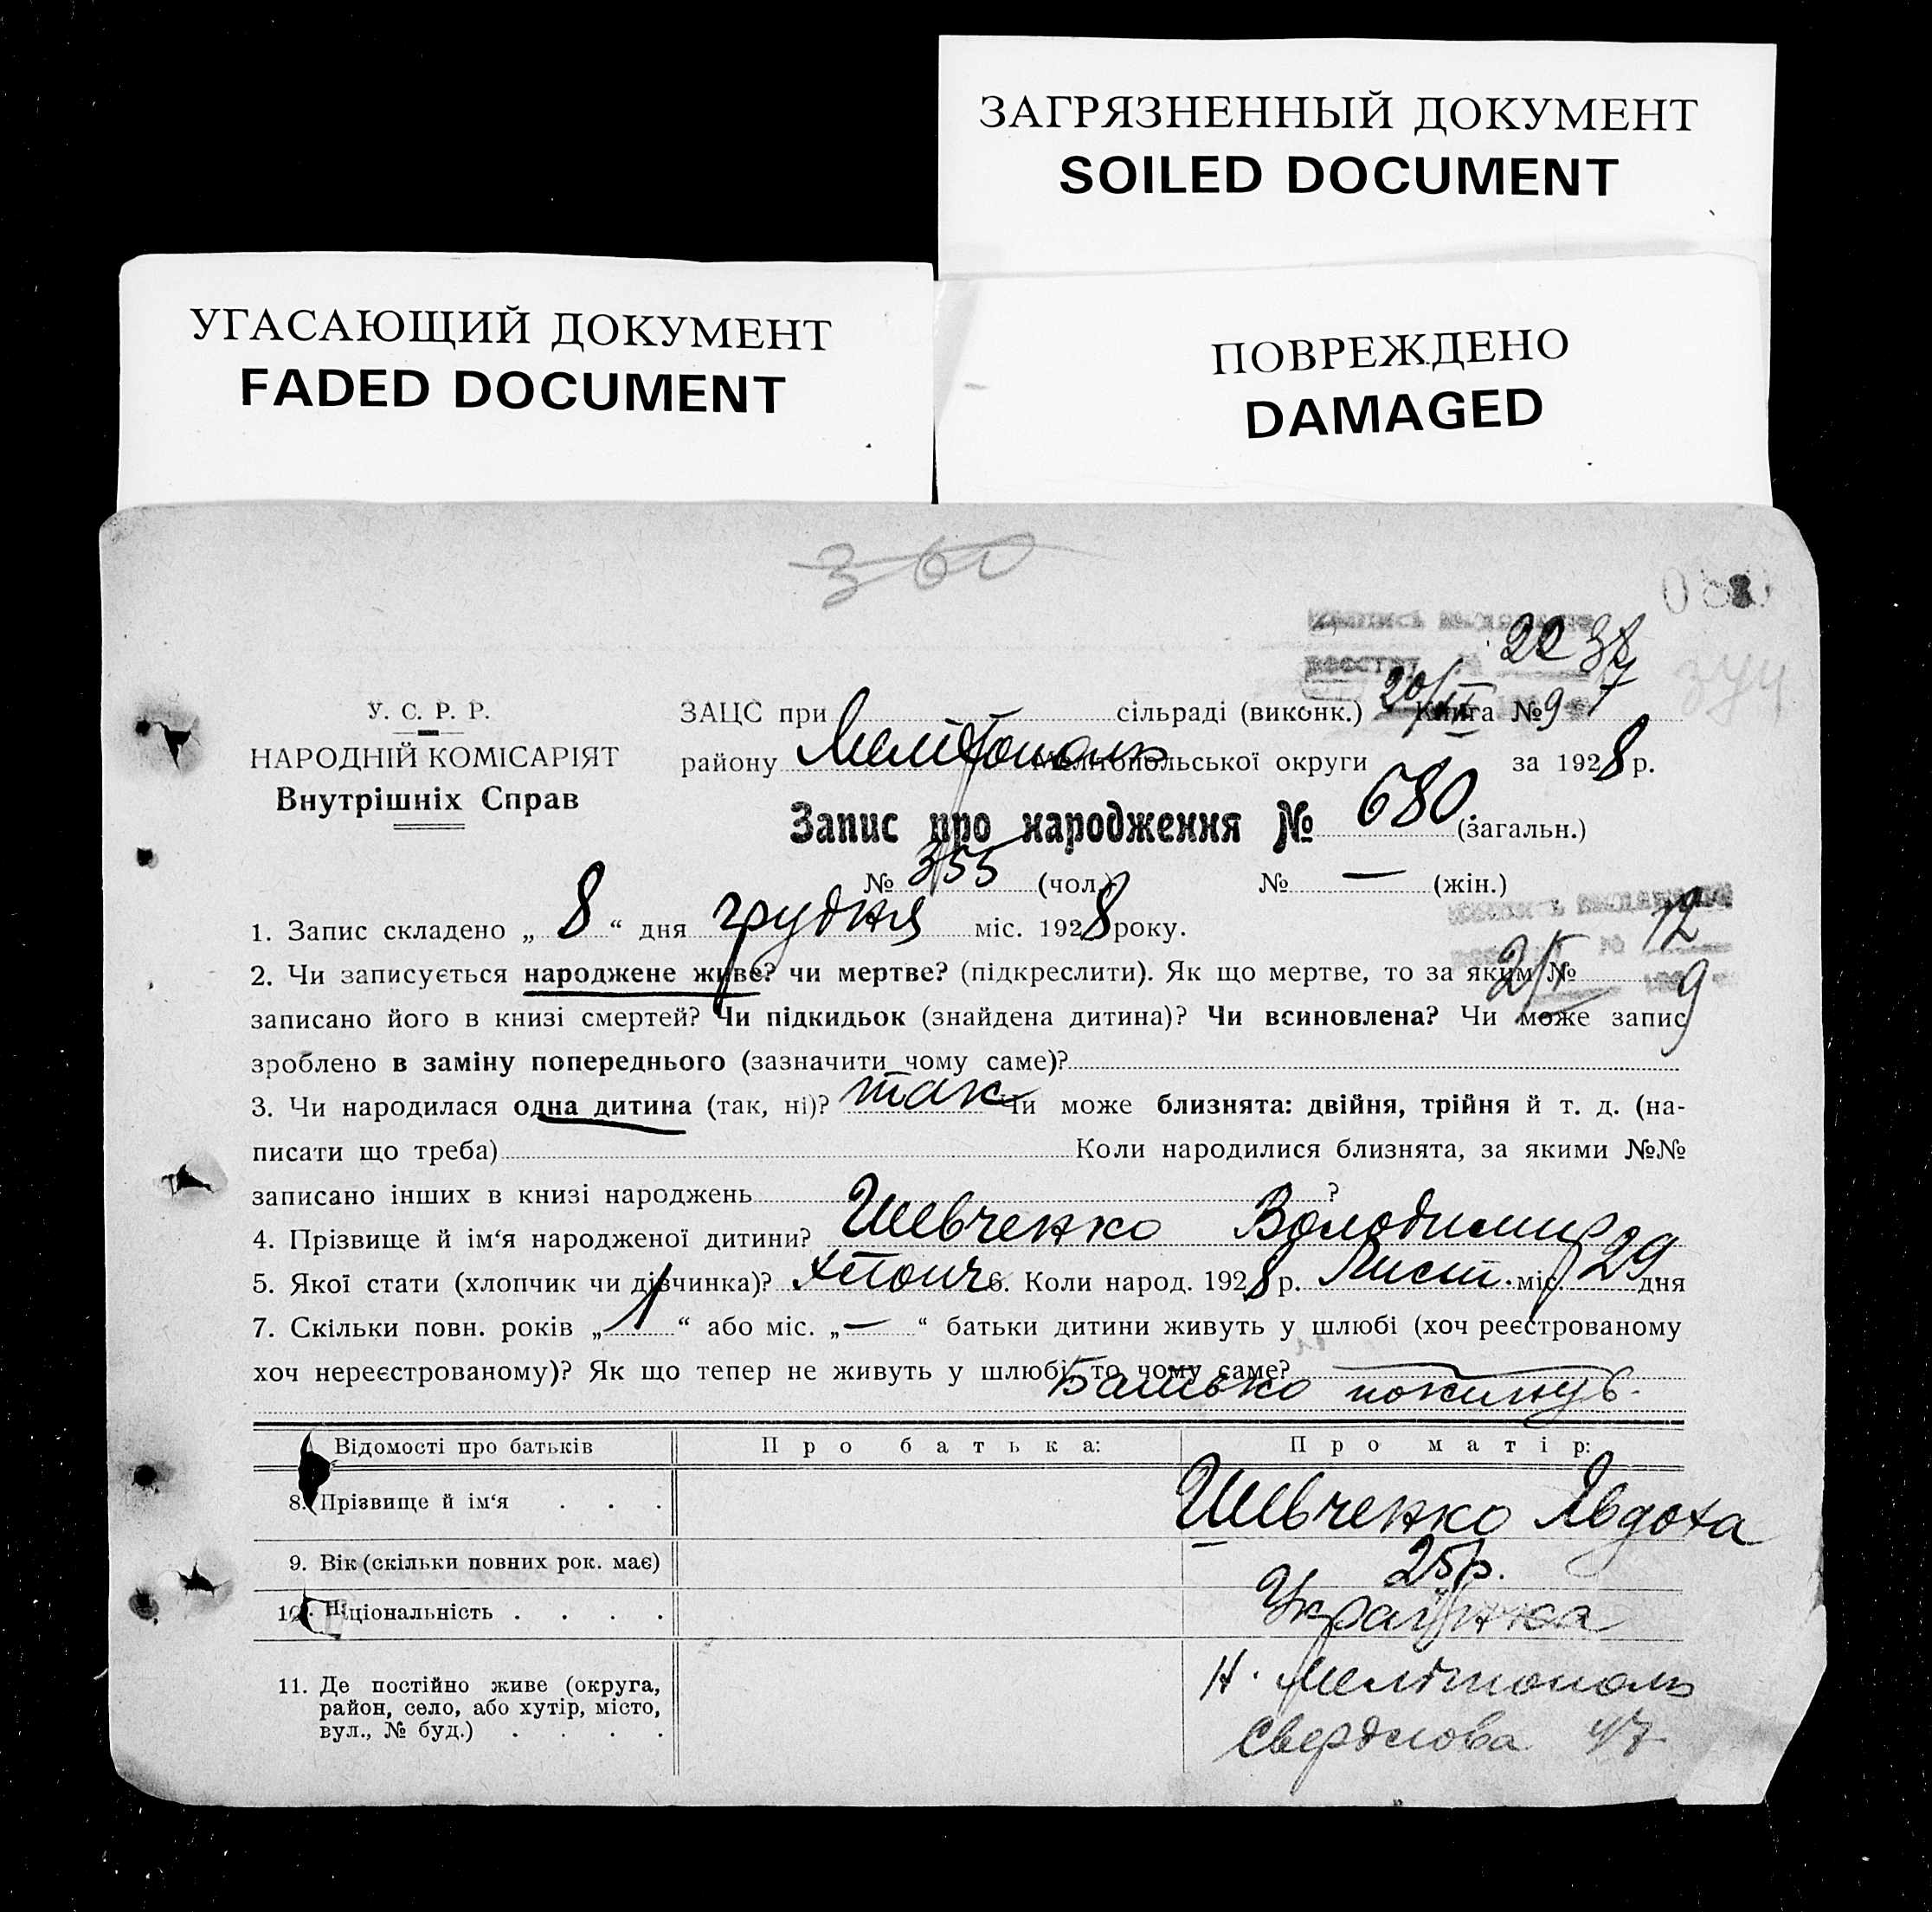 ЗАГРЯЗНЕННЫЙ ДОКУМЕНТ
SOILED DOCUMENT
УГАСАЮЩИЙ ДОКУМЕНТ
FADED DOCUMENT
ПОВРЕЖДЕНО
DAMAGED
360
У. С. Р. Р.
НАРОДНІЙ КОМІСАРІЯТ
Внутрішніх Справ
ЗАЦС при сільраді (виконк.) Книга №
району Мелітополь Мелітопольської округи за 1928 р.
Запис про народження № 680 (загальн.)
№ 355 (чол.) № — (жін.)
1. Запис складено „ 8 “ дня грудня міс. 1928 року.
2. Чи записується народжене живе? чи мертве? (підкреслити). Як що мертве, то за яким №
записано його в книзі смертей? Чи підкидьок (знайдена дитина)? Чи всиновлена? Чи може запис
зроблено в заміну попереднього (зазначити чому саме)?
3. Чи народилася одна дитина (так, ні)? так Чи може близнята: двійня, трійня й т. д. (на-
писати що треба) Коли народилися близнята, за якими №№
записано інших в книзі народжень ?
4. Прізвище й ім‘я народженої дитини? Шевченко Володимир
5. Якої стати (хлопчик чи дівчинка)? хлопч 6. Коли народ. 1928 р. Лист. міс. 29 дня
7. Скільки повн. років „ 1 “ або міс. „ — “ батьки дитини живуть у шлюбі (хоч реєстрованому
хоч нереєстрованому)? Як що тепер не живуть у шлюбі, то чому саме?
Батько покинув.
Відомості про батьків Про батька: Про матір:
8. Прізвище й ім‘я . . . Шевченко Явдоха
9. Вік (скільки повних рок. має) 25 р.
10. Національність . . . . Українка
11. Де постійно живе (округа,
район, село, або хутір, місто,
вул., № буд.) . . . .
Н. Мелітополь
Свердлова 47